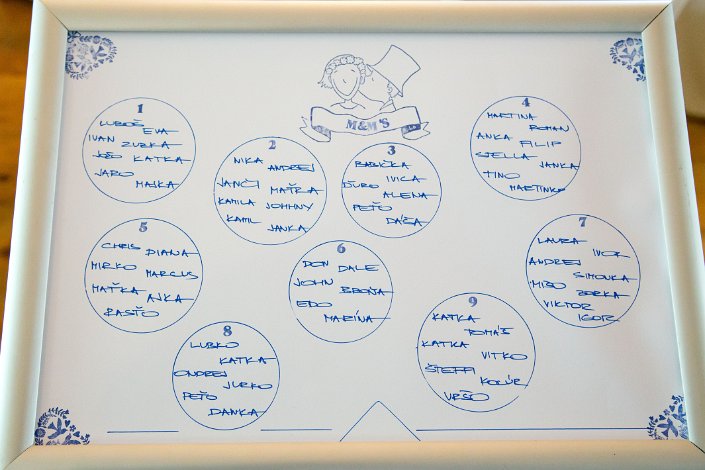 M&M'S
1
LUBOŠ
EVA
IVAN ZUZKA
JOŽO KATKA
JARO
MAJKA
2
NIKA
ANDREJ
JANČI MAŤKA
KAMILA JOHNNY
KAMIL
JANKA
3
BABIČKA
IVICA
ĎURO
ALENA
PEŤO
DÁŠA
4
MARTINA
ROMAN
ANKA FILIP
STELLA
JANKA
TINO
MARTINKO
5
CHRIS DIANA
MIRKO MARCUS
MAŤKA
AJKA
RASŤO
6
DON DALE
JOHN BROŇA
EDO
MARÍNA
7
LAURA
IVOR
ANDREJ
SIMONKA
MIŠO ZORKA
VIKTOR
IGOR
8
ĽUBKO
KATKA
ONDREJ
JURKO
PEŤO
DANKA
9
KATKA
TOMÁŠ
KATKA
VITKO
ŠTEFFI
VRŠO